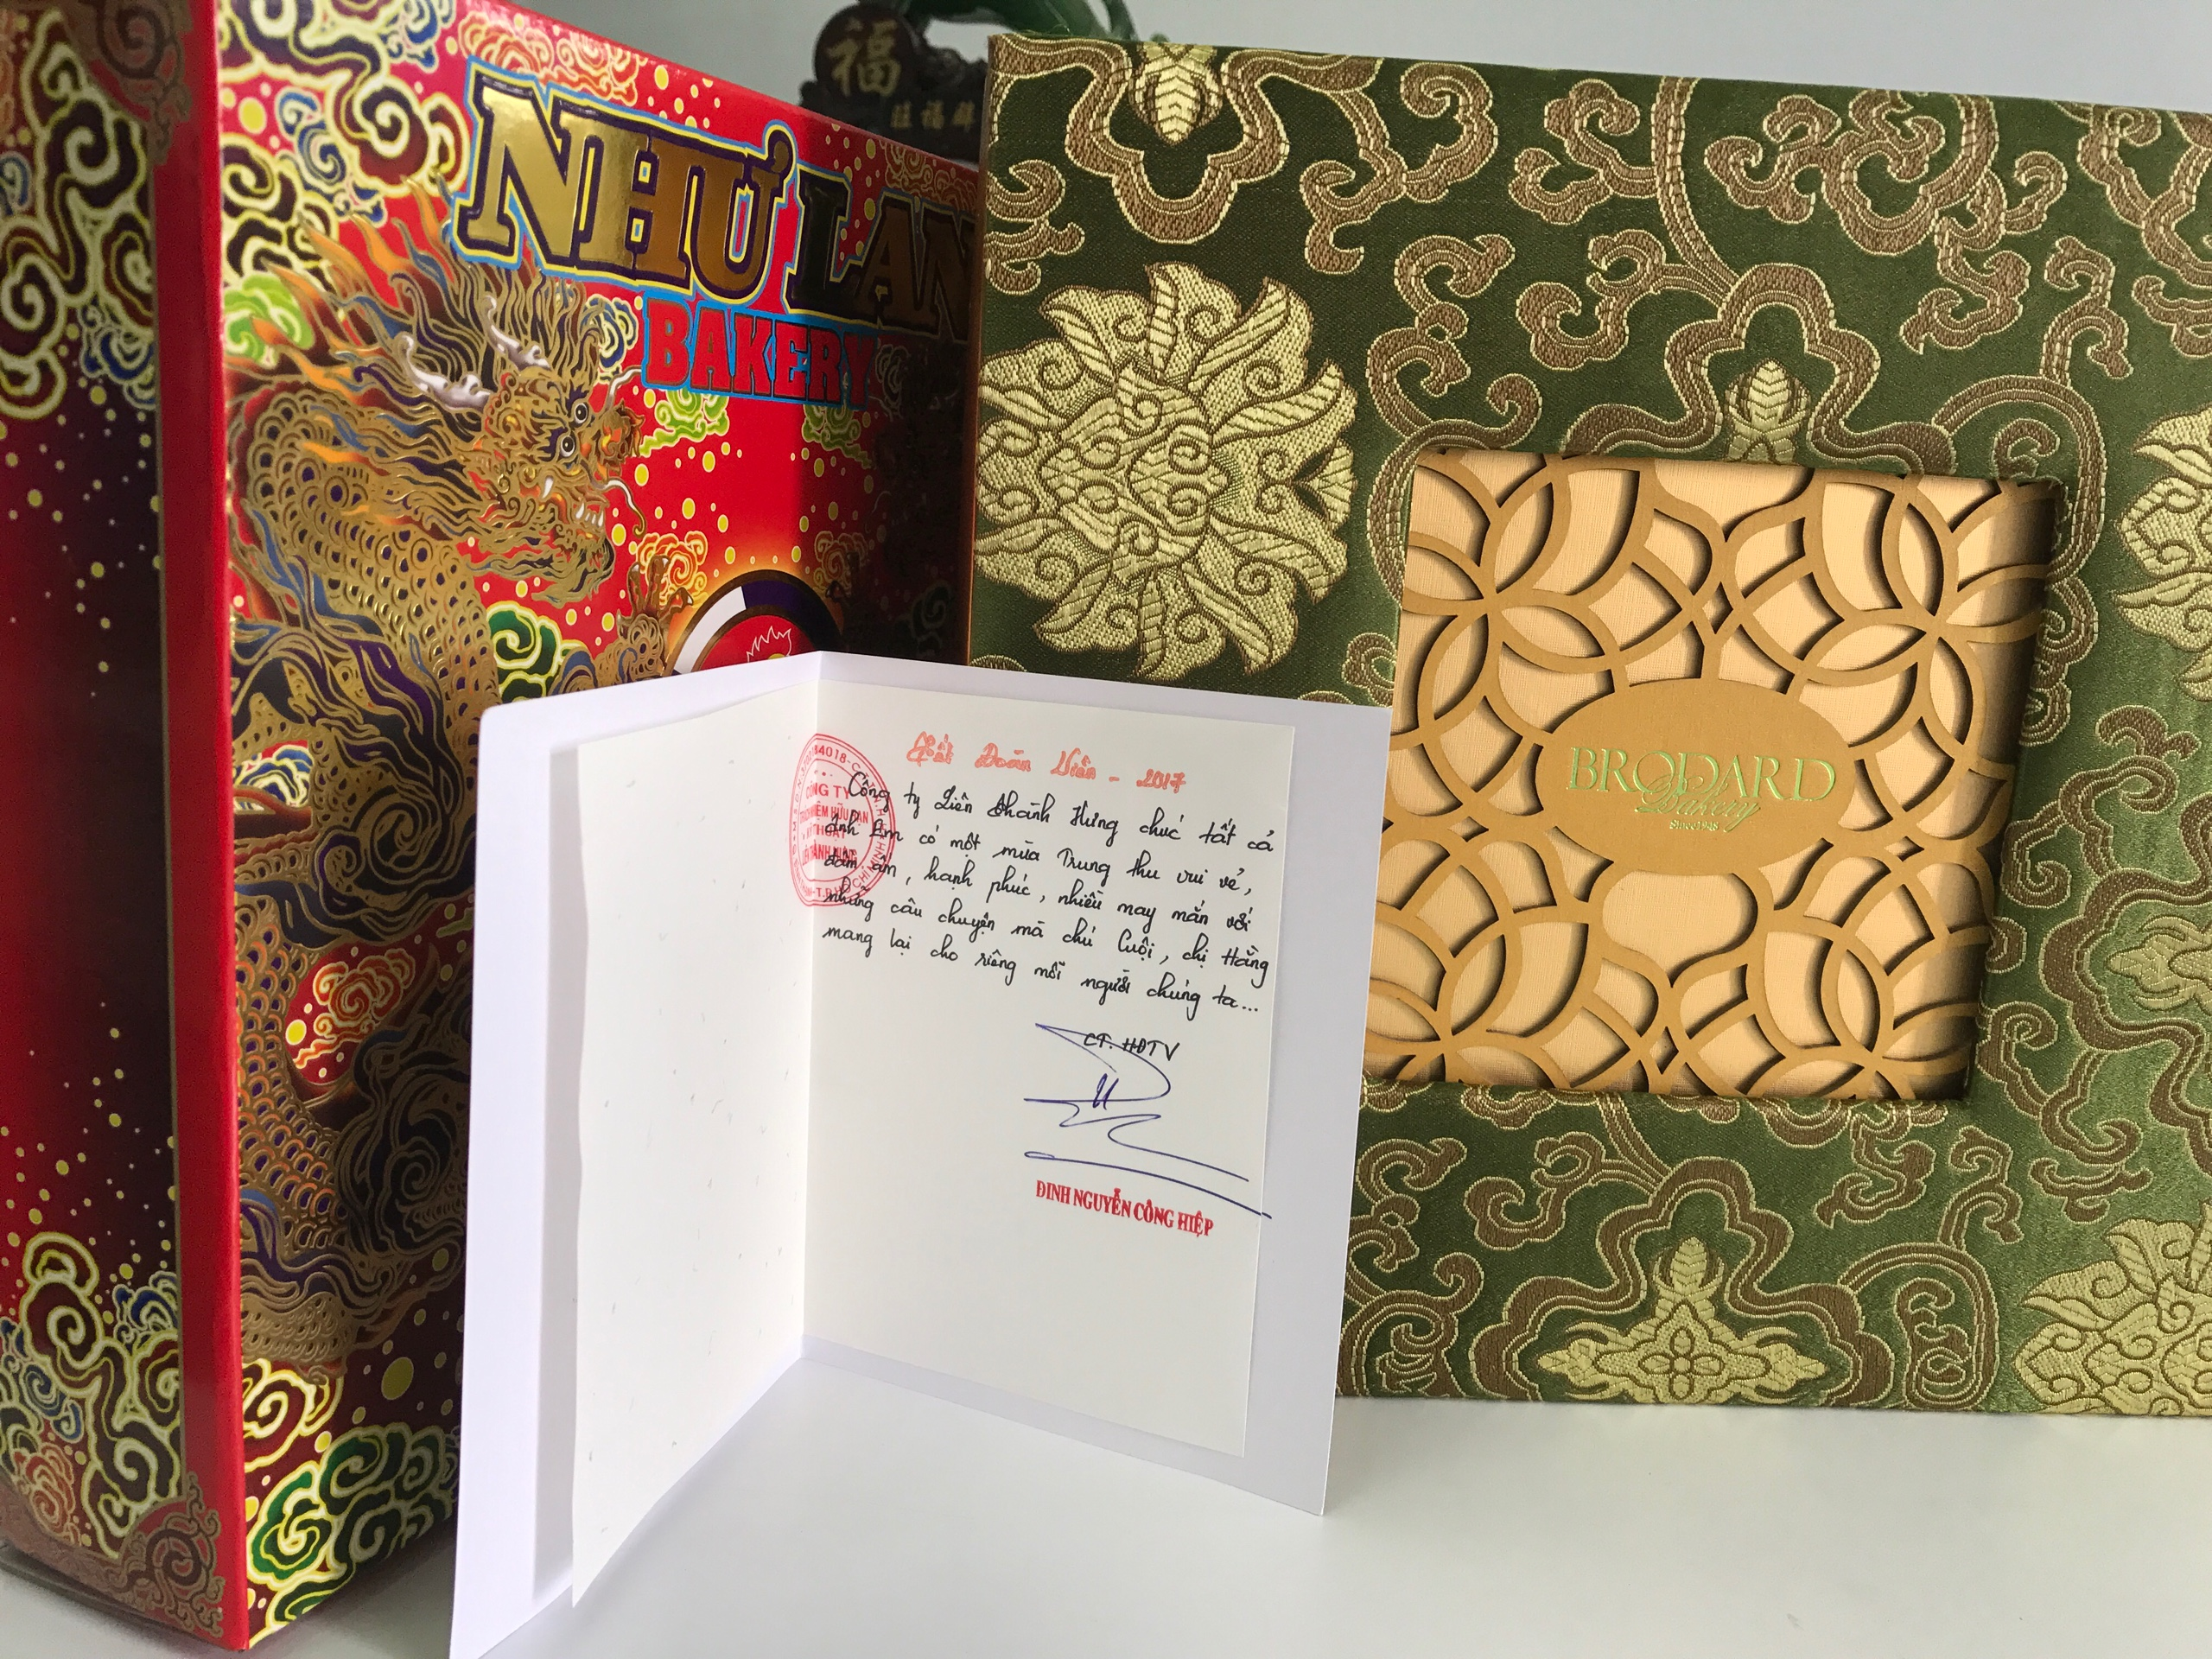 NHƯ LAN
BAKERY
福
BRODARD
Bakery
Since 1948
Tết Đoàn Viên - 2017
Công ty Liên Thành Hưng chúc tất cả
Anh Em có một mùa Trung thu vui vẻ,
đầm ấm, hạnh phúc, nhiều may mắn với
những câu chuyện mà chú Cuội, chị Hằng
mang lại cho riêng mỗi người chúng ta...
CT. HĐTV
ĐINH NGUYỄN CÔNG HIỆP
CÔNG TY